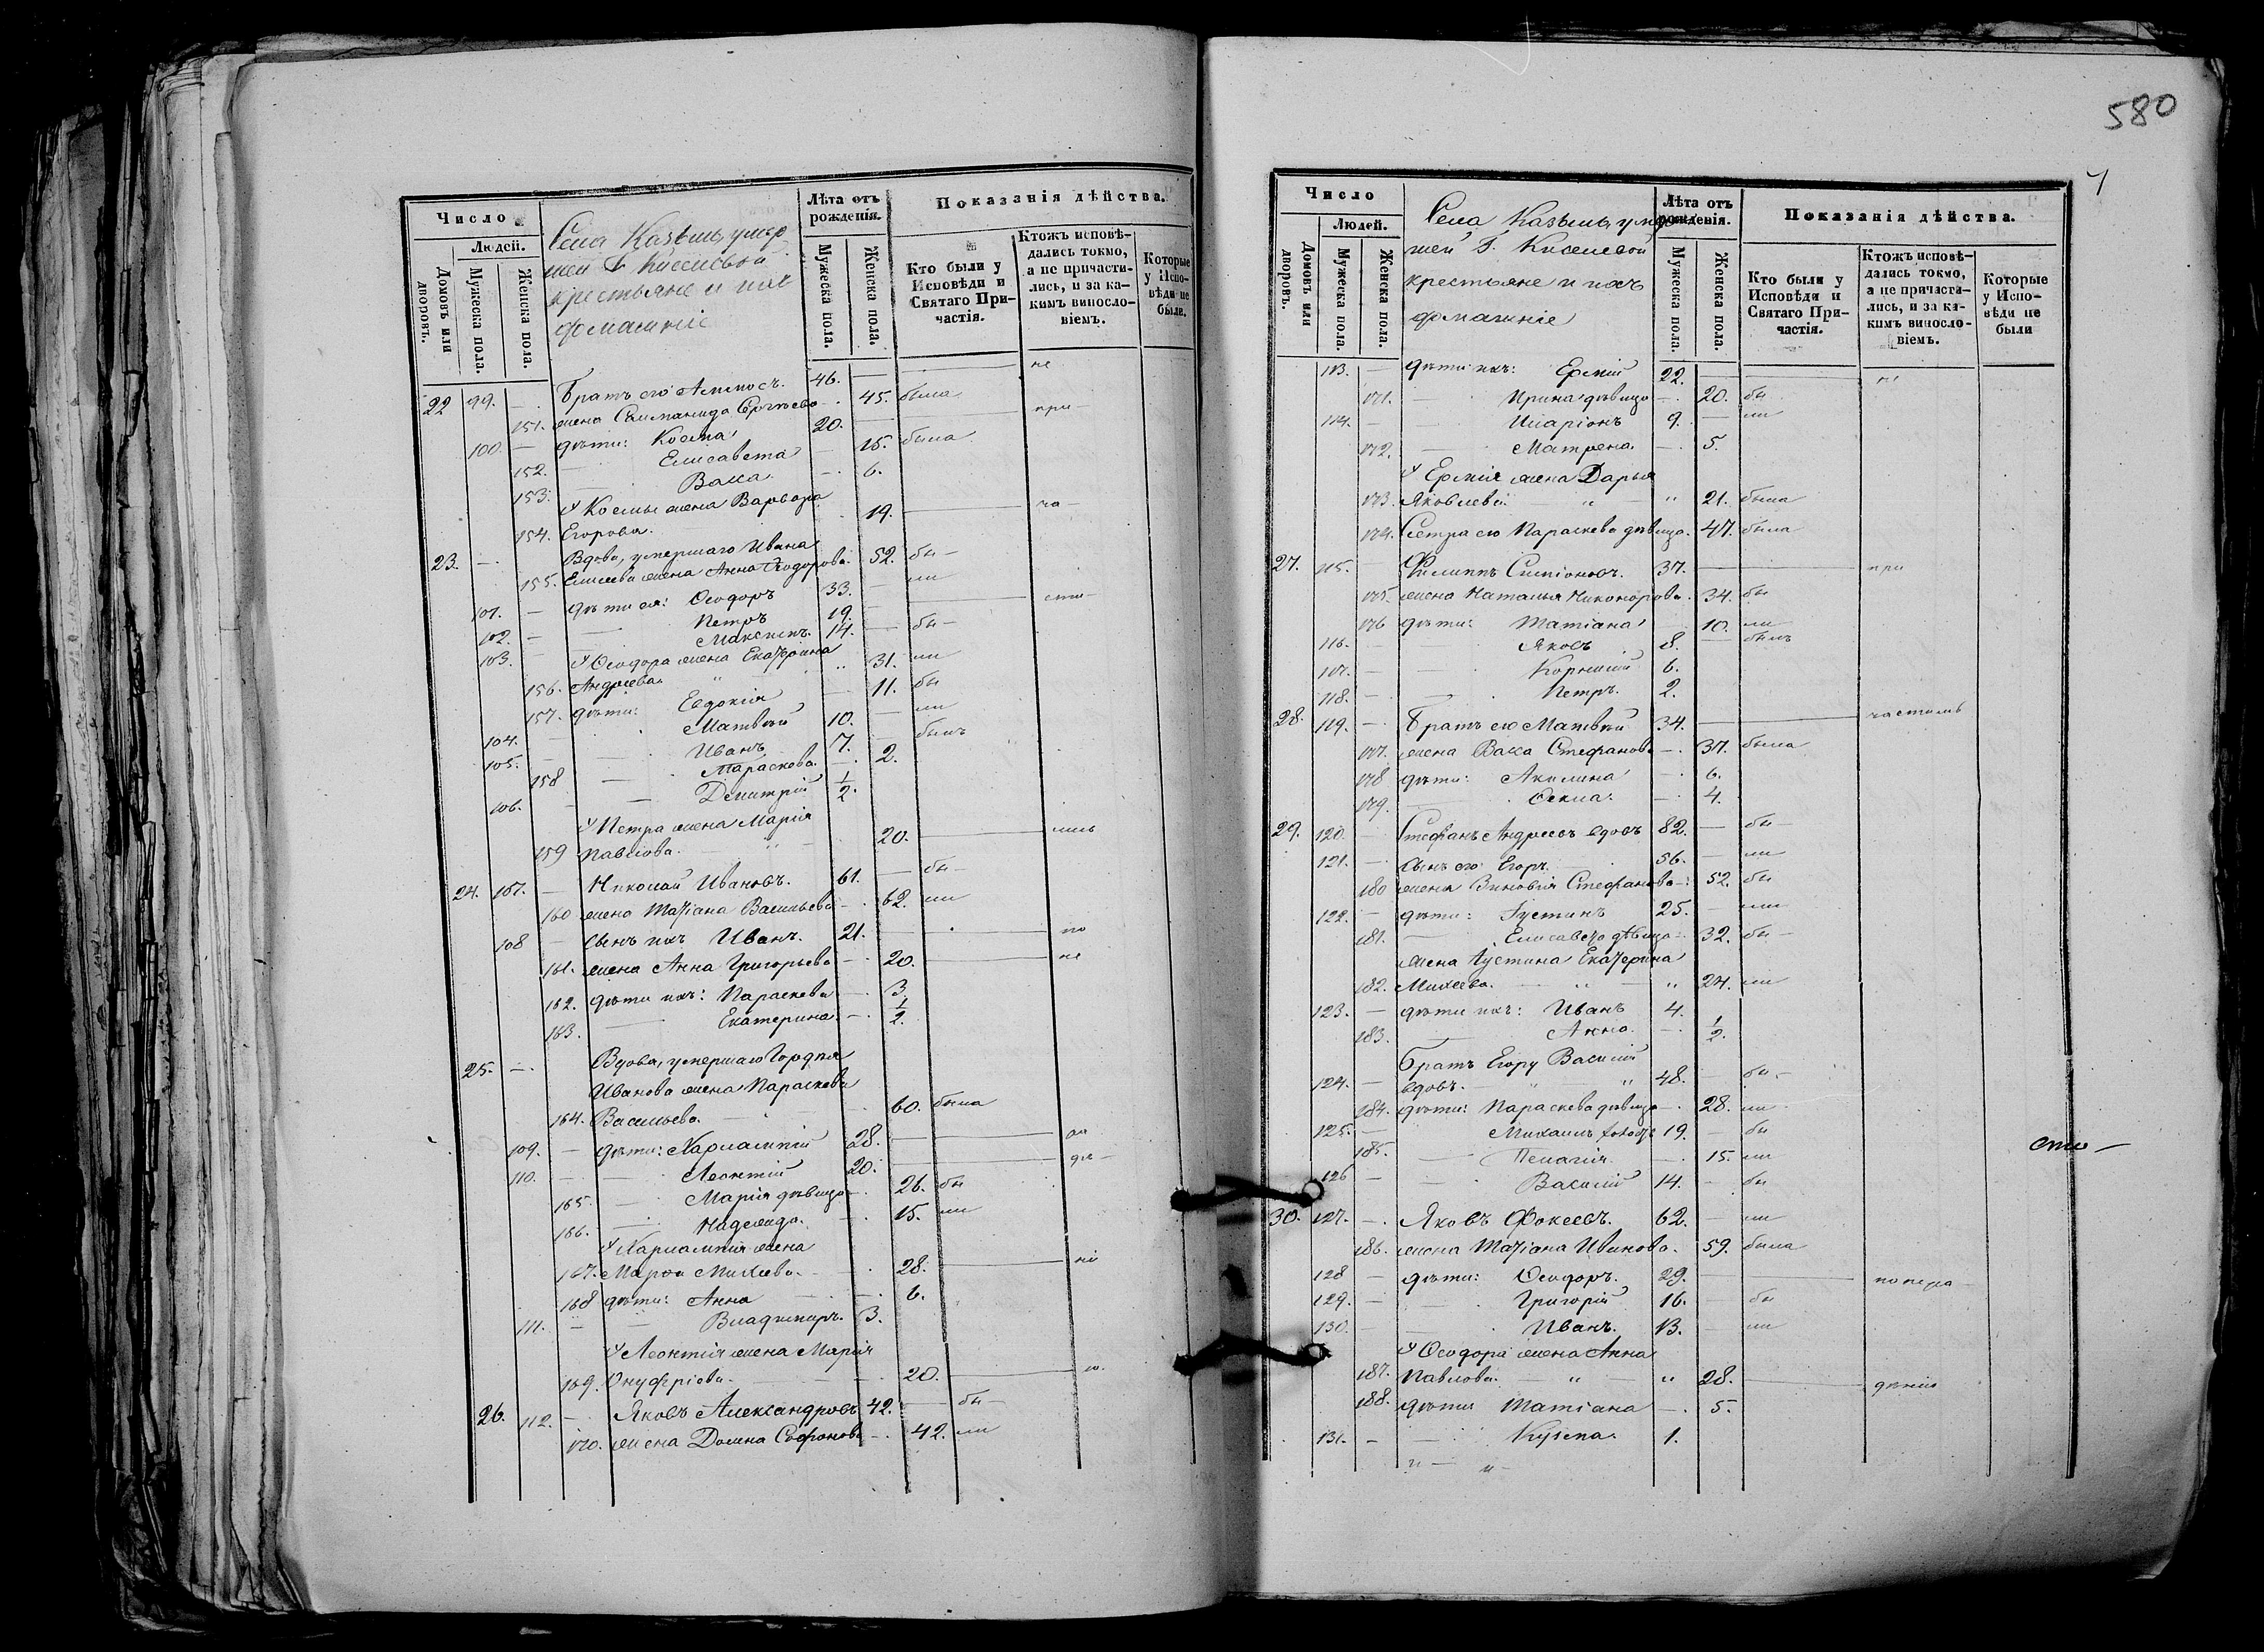 Число
Людей.
Домовъ или дворовъ.
Мужеска пола.
Женска пола.
Села Казѣиль, умер
шей Г. Киселевой
крестьяне и ихъ
домашніе
Лѣта отъ рожденія.
Мужеска пола.
Женска пола.
Показанія дѣйства.
Кто были у Исповѣди и Святаго Причастія.
Ктожъ исповѣдались токмо, а не причастились, и за какимъ винословіемъ.
Которые у Исповѣди не были.
22 99. — Братъ его 46. — не
151. жена Ергѣева 45. была
100. — дѣти: Косма 20. — при
152. — Елисавета — 15. была
153. — Васса. — 6.
У Космы жена Варвара
154. Егорова. 19. — ча —
23. — Вдова, умершаго Ивана
155. Елисеева жена Анна Ѳеодорова. 52. бы —
101. — дѣти ея: Ѳеодоръ 33. — ли
102. — Петръ 19. — сти —
103. — Максимъ. 14. — бы —
У Ѳеодора жена Екатерина
156. Андреева. „ 31. ли
157. дѣти: Евдокія — 11. бы
104. — Матвѣй 10. — ли
105. — Иванъ 7. — былъ
158 — Параскева. — 2.
106. — Димитрій 1/2.
У Петра жена Марія
159 Павлова. „ 20. — лись
24. 107. — Николай Ивановъ. 61. — бы —
160 жена Татіана Васильева — 62. ли
108 — сынъ ихъ Иванъ. 21. — по
161. жена Анна Григорьева — 20. — не
162. дѣти ихъ: Параскева — 3.
163. — Екатерина. — 1/2.
25. — Вдова, умершаго Гордѣя
Иванова жена Параскева
164. Васильева. 60. была
109. — дѣти: Харлампій 28. —
110. — Леонтій 20. —
165. — Марія дѣвица — 26. бы
166. — Надежда. — 15. ли
У Харлампія жена
167. Марѳа Михеева. 28. —
168 дѣти: Анна — 6.
111. — Владимиръ. 3.
У Леонтія жена Марія
169. Онуфріева. — 20. —
26. 112. — Яковъ Александровъ 42. — бы —
170. жена Домна Софонова — 42. ли
580
Число
Людей.
Домовъ или дворовъ.
Мужеска пола.
Женска пола.
Села Казѣиль, умер
шей Г. Киселевой
крестьяне и ихъ
домашніе
Лѣта отъ рожденія.
Мужеска пола.
Женска пола.
Показанія дѣйства.
Кто были у Исповѣди и Святаго Причастія.
Ктожъ исповѣдались токмо, а не причастились, и за какимъ винословіемъ.
Которые у Исповѣди не были
113. — дѣти ихъ: Ермій 22. —
171. — Ирина дѣвица — 20. бы
114. — Иларіонъ 9. — ли
172. — Матрена. — 5.
У Ермія жена Дарья
173. Яковлева. „ — „ 21. была
174. Сестра его Параскева дѣвица. 47. была
27. 115. — Филиппъ Симіоновъ. 37. — при
175. жена Наталья Никонорова. 34. бы
176 дѣти: Татіана 10. ли
116. — Яковъ 8. — былъ
117. — Корнилій 6.
118. — Петръ. 2.
28. 119. — Братъ его Матвѣй 34. — частилъ
177. жена Васса Стефанова — 37. была
178 дѣти: Акилина — 6.
179. — Ѳекла. — 4.
29. 120. Стефанъ Андреевъ вдовъ 82. — бы —
121. — Сынъ его Егоръ. 56. — ли
180 жена Зиновія Стефанова — 52. бы
122. — дѣти: Іустинъ 25. — ли
181. — Елисавета дѣвица — 32. бы —
жена Іустина Екатерина
182. Михеева. — „ — „ 24. ли
123. — дѣти ихъ: Иванъ 4.
183. — Анна. — 1/2.
Братъ Егору Василій
124. — вдовъ. „ „ 48. — бы. —
184. дѣти: Параскева дѣвица — 28. ли
125. — Михаилъ 19. — бы
185. — Пелагія. — 15. ли
126 — Василій 14. — бы
сто —
30. 127. — Яковъ Фокеевъ. 62. — ли
186. жена Татіана Иванова. 59. была
128 — дѣти: Ѳеодоръ. 29. —
129. — Григорій 16. — бы
130. — Иванъ. 13. — ли
У Ѳеодора жена Анна
187. Павлова. „ — „ 28. —
188. дѣти Татіана — 5.
131. — Кузема. 1.